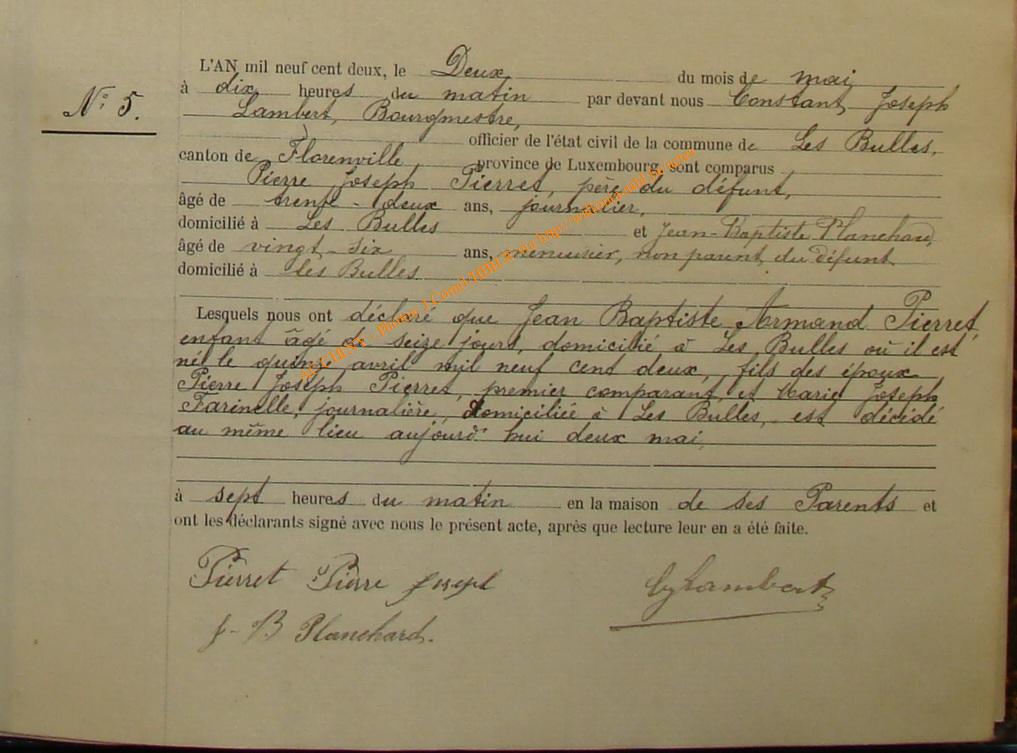 N° 5.
L'AN mil neuf cent deux, le Deux du mois de mai
à dix heures du matin par devant nous Constant Joseph
Lambert, Bourgmestre,
officier de l'état civil de la commune de Les Bulles,
canton de Florenville province de Luxembourg, sont comparus
Pierre Joseph Pierret, père du défunt,
âgé de trente-deux ans, journalier,
domicilié à Les Bulles et Jean-Baptiste Planchard,
âgé de vingt-six ans, menuisier, non parent du défunt
domicilié à les Bulles
Lesquels nous ont déclaré que Jean Baptiste Armand Pierret,
enfant âgé de seize jours, domicilié à Les Bulles où il est
né le quinze avril mil neuf cent deux, fils des époux
Pierre Joseph Pierret, premier comparant, et Marie Joseph
Farinelle, journalière, domiciliée à Les Bulles, est décédé
au même lieu aujourd'hui deux mai,
à sept heures du matin en la maison de ses Parents et
ont les déclarants signé avec nous le présent acte, après que lecture leur en a été faite.
Pierret Pierre Joseph
CJLambert
J-B Planchard.